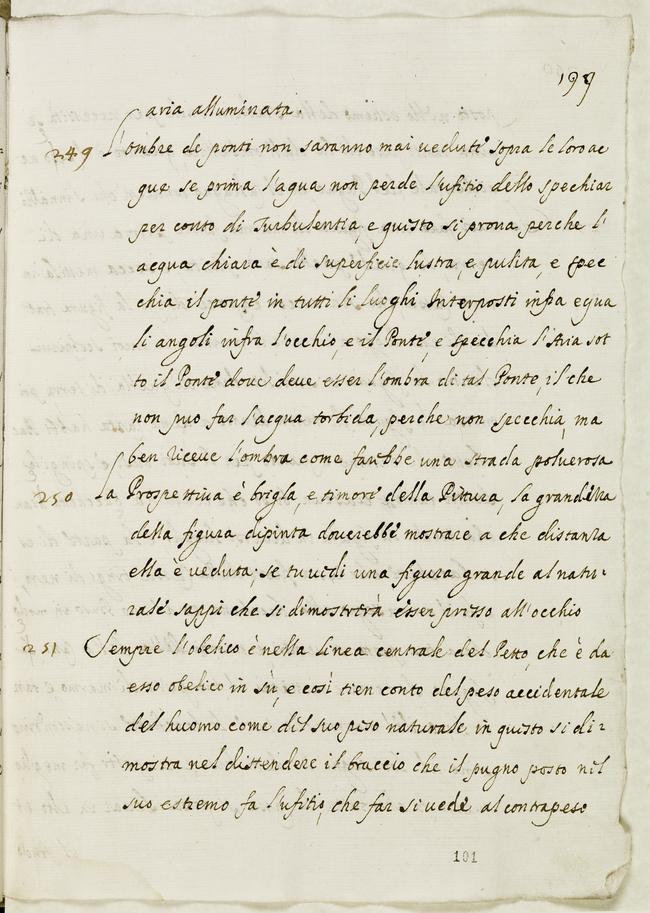 199
aria alluminata.
249 L'ombre de ponti non saranno mai vedute sopra le loro ac
que se prima l'aqua non perde l'ufitio dello spechiar
per conto di Turbulentia, e questo si prova, perche l'
acqua chiara è di superficie lustra, e pulita, e spec
chia il ponte in tutti li luoghi Interposti infra equa
li angoli infra l'occhio, e il Ponte, e specchia l'Aria sot
to il Ponte dove deve esser l'ombra di tal Ponte, il che
non puo far l'acqua torbida, perche non specchia, ma
ben riceve l'ombra come farebbe una strada polverosa
250 La Prospettiva è brigla, e timore della Pittura, la grandezza
della figura dipinta doverebbe mostrare a che distanza
ella è veduta. se tu vedi una figura grande al natu-
rale sappi che si dimostrerà esser presso all'occhio
251 Sempre l'obelico è nella linea centrale del Petto, che è da
esso obelico in sù, e così tien conto del peso accidentale
del huomo come del suo peso naturale in questo si di-
mostra nel distendere il braccio che il pugno posto nel
suo estremo fa l'ufitio, che far si vede al contrapeso
101